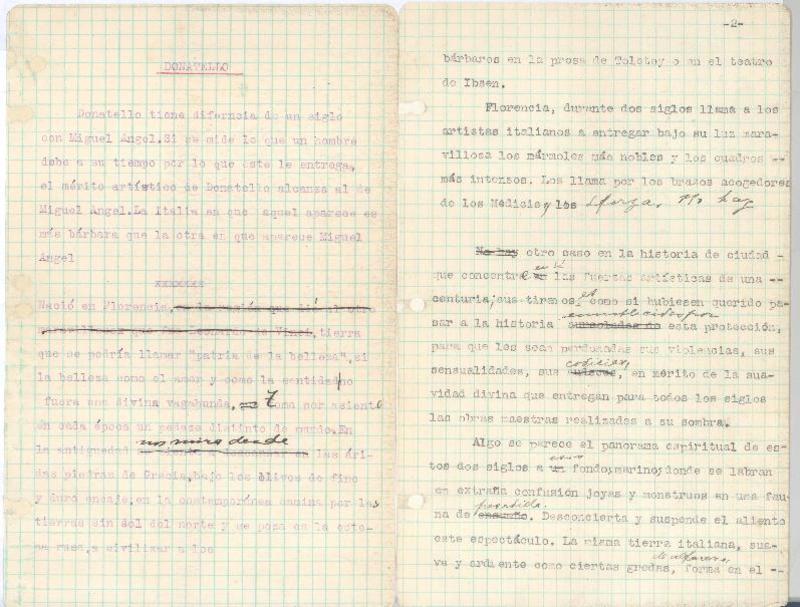 DONATELLO
Donatello tiene diferncia de un siglo
con Miguel Angel.Si se mide lo que un hombre
debe a su tiempo por lo que éste le entrega,
el mérito artístico de Donatello alcanza al de
Miguel Angel.La Italia en que aquel aparece es
más bárbara que la otra en que aparece Miguel
Angel
xxxxxxx
Nació en Florencia, tierra
que se podría llamar "patria de la belleza",si
la belleza como el amor y como la santidad no
fuera una divina vagabunda, Toma por asiento
en cada época un pedazo distinto de mundo.En
la antiguedad nos mira desde las ári-
das piedras de Grecia,bajo los olivos de fino
y duro encaje;en la contemporánea camina por las
tierras sin sol del norte y se posa en la este-
pa rusa,a civilizar a los
-2-
bárbaros en la prosa de Tolstoy o en el teatro
de Ibsen.
Florencia, durante dos siglos llama a los
artistas italianos a entregar bajo su luz mara-
villosa los mármoles más nobles y los cuadros --
más intensos. Los llama por los brazos acogedores
de los Médicis y los Sforza. No hay
No hay otro caso en la historia de ciudad -
que concentre en sí las fuerzas artísticas de una --
centuria;sus tiranos, es como si hubiesen querido pa-
sar a la historia ennoblecidos por esta protección,
para que les sean perdonadas sus violencias, sus
sensualidades, sus codicias, en mérito de la sua-
vidad divina que entregan para todos los siglos
las obras maestras realizadas a su sombra.
Algo se parece el panorama espiritual de es-
tos dos siglos a un fondo marino;donde se labran
en extraña confusión joyas y monstruos en una fau-
na de pesadilla. Desconcierta y suspende el aliento
este espectáculo. La misma tierra italiana, sua-
ve y ardiente como ciertas gredas, de alfarero, forma en el --